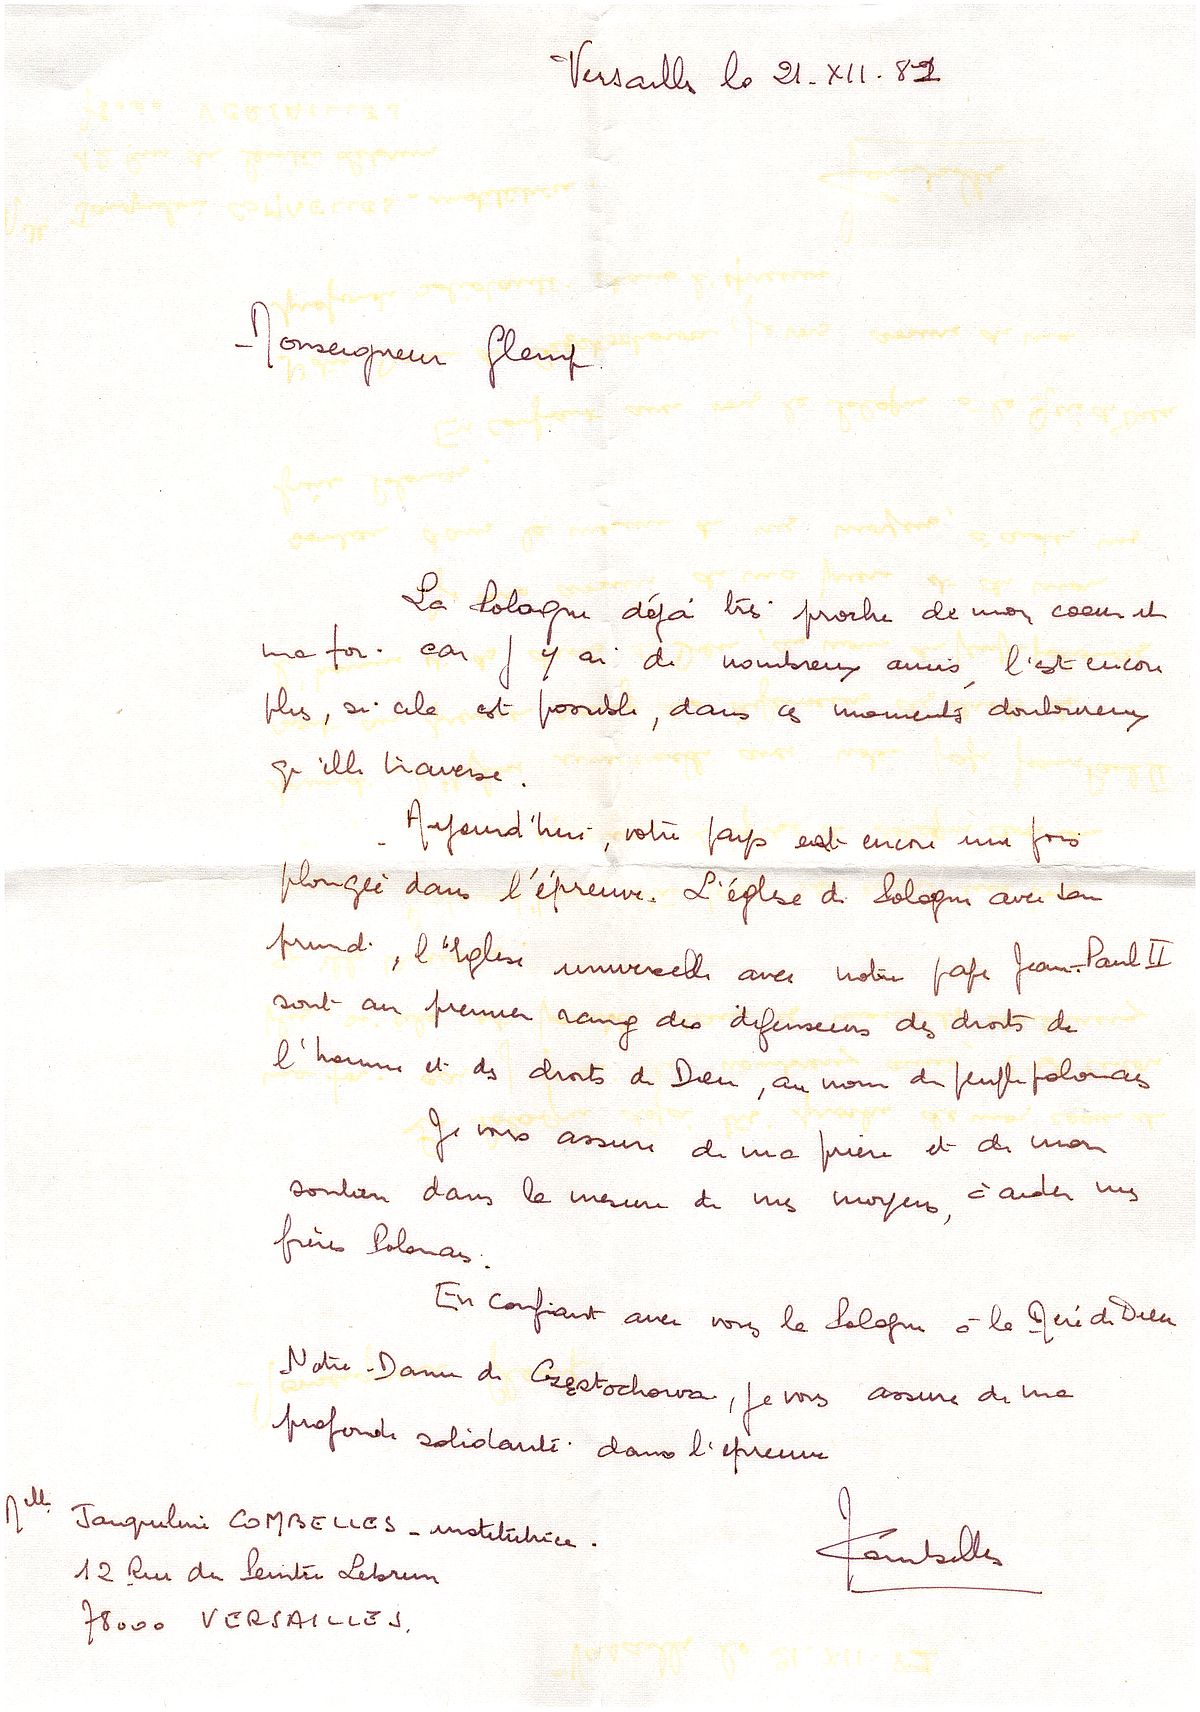 Versailles le 21.XII.81
Monseigneur Glemp.
La Pologne déjà très proche de mon coeur et
ma foi car j'y ai de nombreux amis, l'est encore
plus, si cela est possible, dans ces moments douloureux
qu'elle traverse.
Aujourd'hui, votre pays est encore une fois
plongée dans l'épreuve. L'église de Pologne avec son
primat, l'Eglise universelle avec notre pape Jean-Paul II
sont au premier rang des défenseurs des droits de
l'homme et des droits de Dieu, au nom du peuple polonais
Je vous assure de ma prière et de mon
soutien dans la mesure de mes moyens, à aider mes
frères Polonais.
En confiant avec vous la Pologne à la Mère de Dieu
Notre-Dame de Częstochowa, je vous assure de ma
profonde solidarité dans l'épreuve
JCombelles
Mlle Jacqueline COMBELLES - institutrice.
12 Rue du Peintre Lebrun
78000 VERSAILLES.